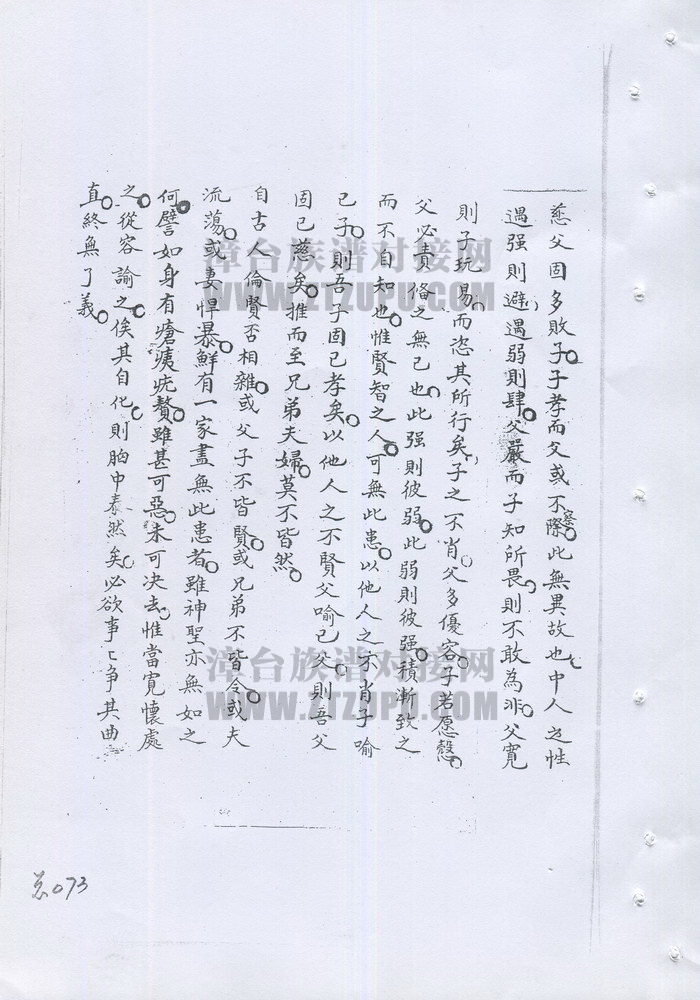 慈父固多敗子。子孝而父或不察。際此無異故也。中人之性
遇强則避，遇弱則肆。父嚴而子知所畏，則不敢為非。父寬
則子玩易，而恣其所行矣。子之不肖，父多優容。子若愿慤，
父必責俻之無已也。此强則彼弱。此弱則彼强。積漸致之
而不自知也。惟賢智之人。可無此患。以他人之不肖子喻
己子。則吾子固已孝矣。以他人之不賢父喻己父。則吾父
固已慈矣。推而至兄弟夫婦。莫不皆然。
自古人倫賢否相雜。或父子不皆賢。或兄弟不皆令。或夫
流蕩。或妻悍暴。鮮有一家盡無此患者。雖神聖亦無如之
何。譬如身有瘡痍疣贅。雖甚可惡。未可决去。惟當寬懷處
之。從容諭之。俟其自化。則胎中泰然矣。必欲事〻争其曲
直。終無了義。
漳台族谱对接网
WWW.ZTZUPU.COM
漳台族谱对接网
WWW.ZTZUPU.COM
总073